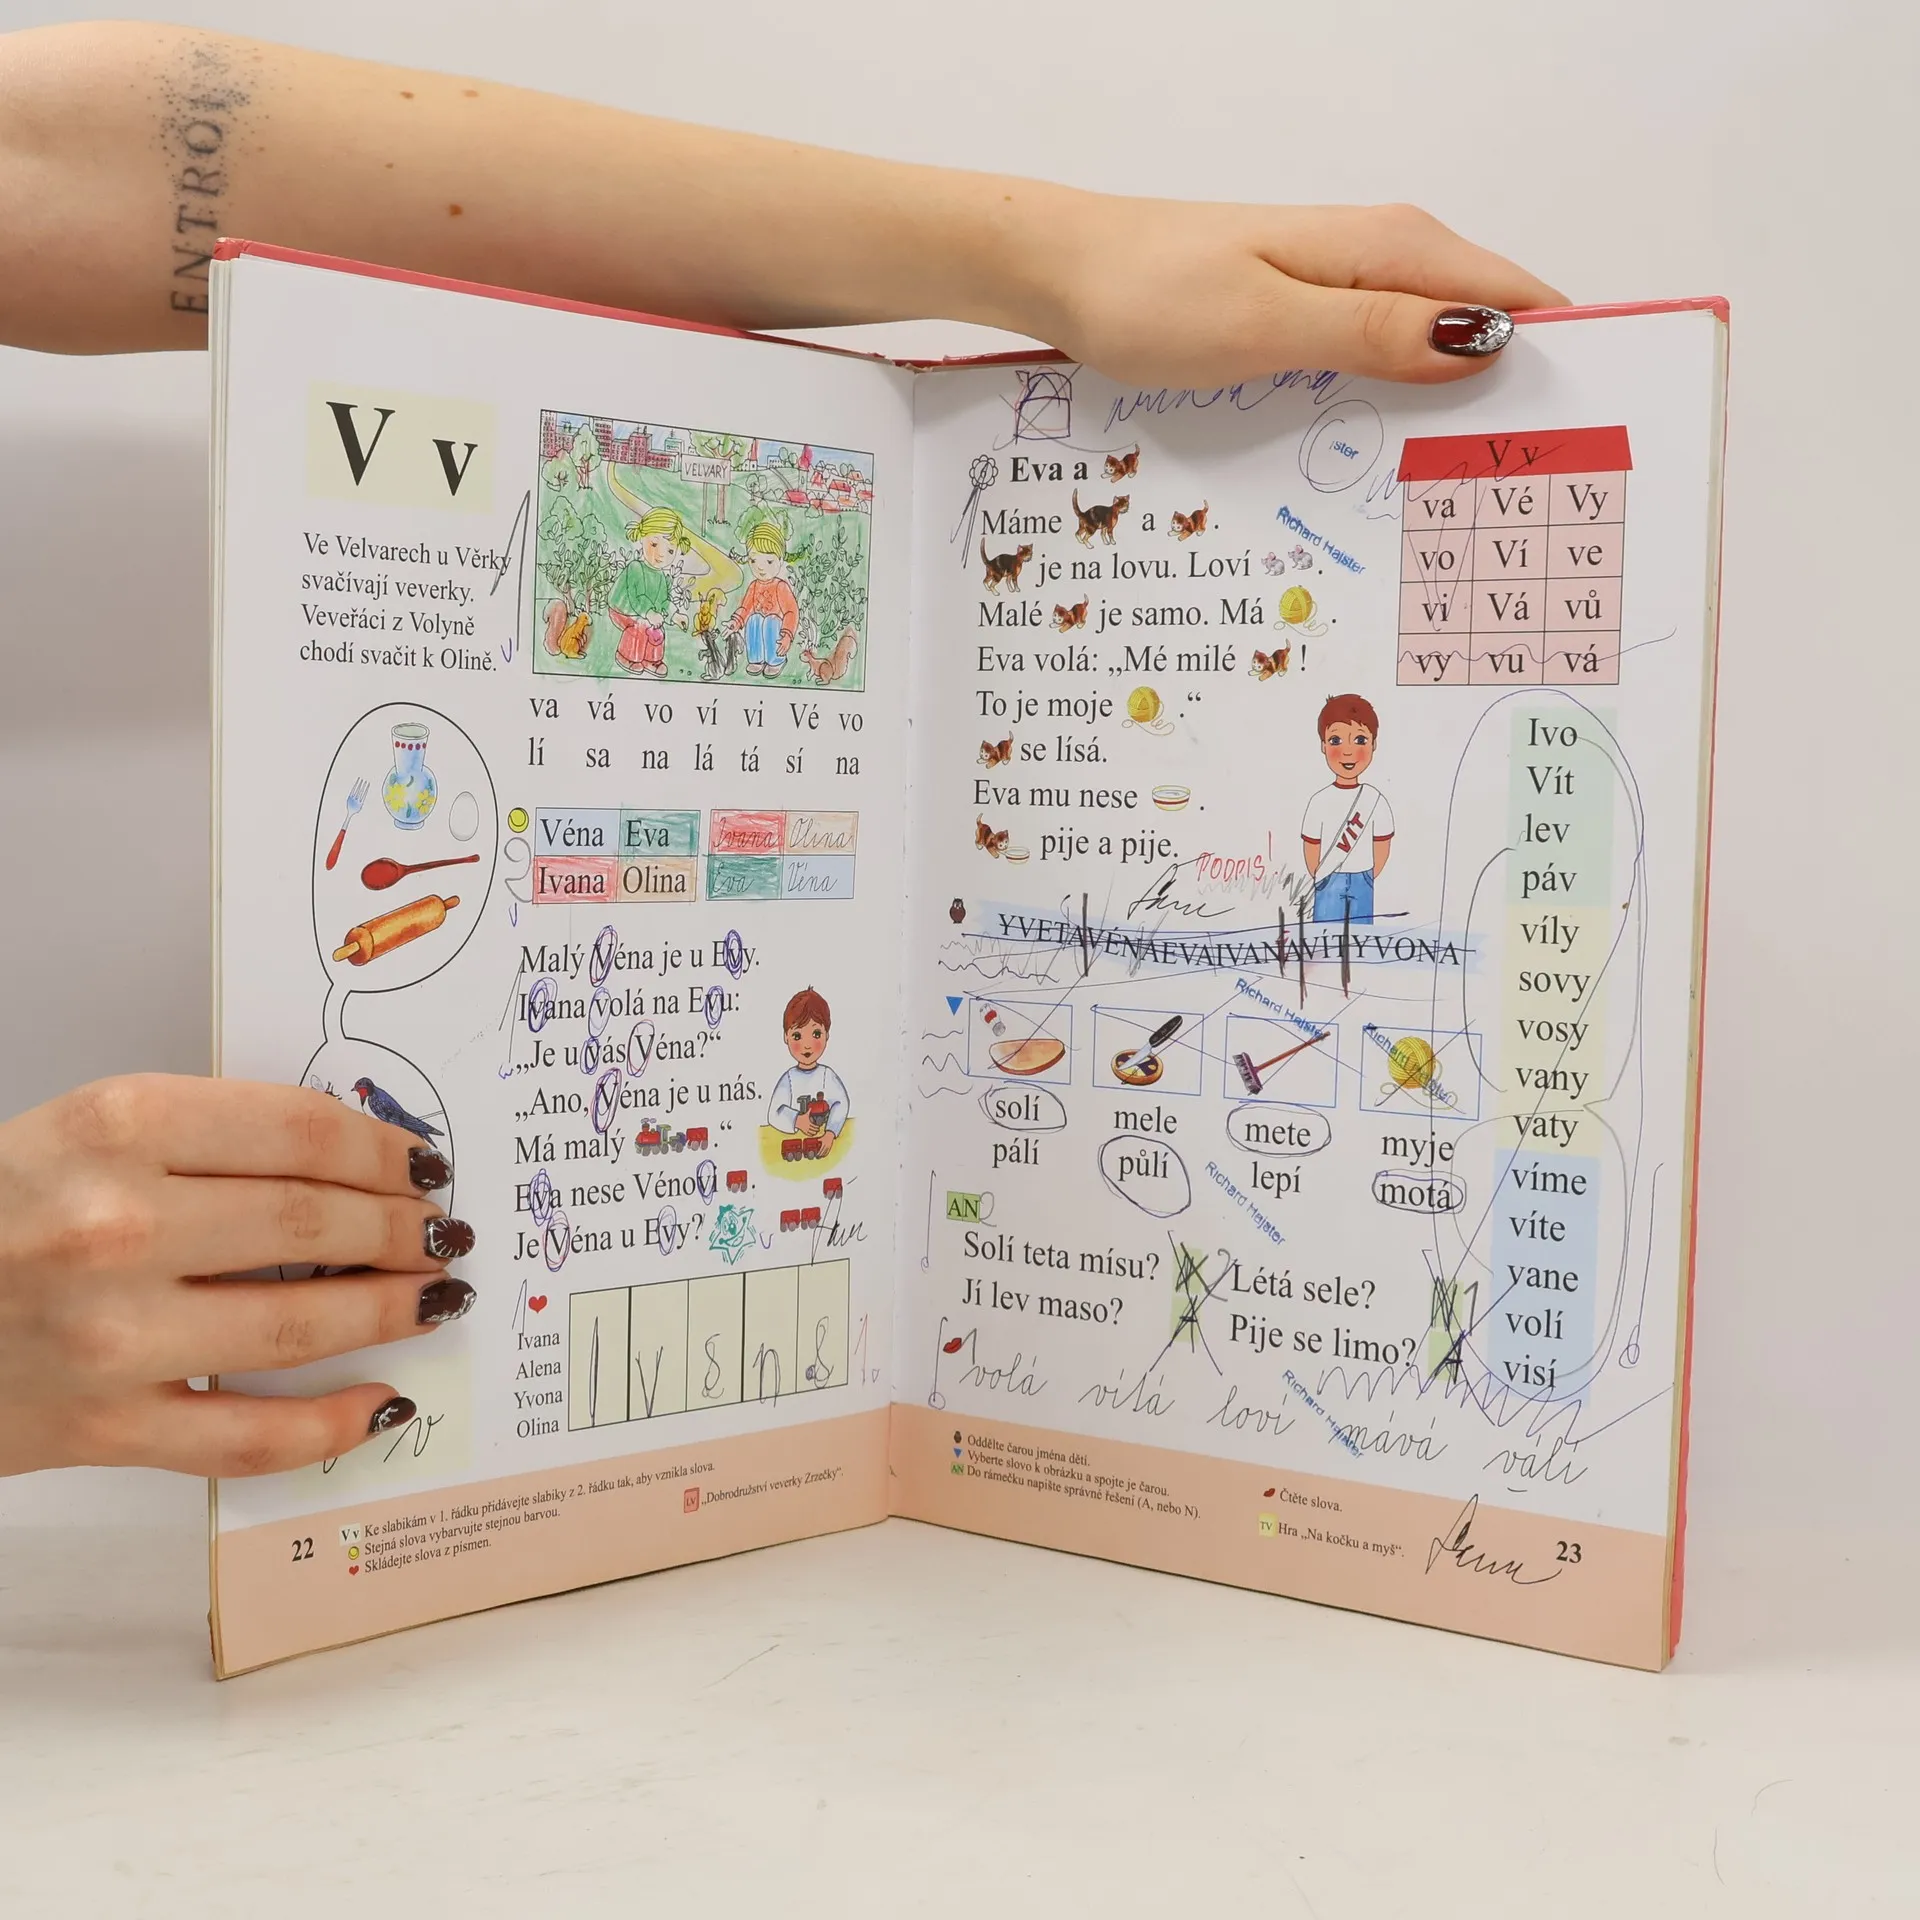 ENTROPY
V v
Ve Velvarech u Věrky
svačívají veverky.
Veveřáci z Volyně
chodí svačit k Olině.
VELVARY
va vá vo ví vi Vé vo
lí sa na lá tá sí na
Véna Eva
Ivana Olina
Ivana Olina
Eva Véna
Malý Véna je u Evy.
Ivana volá na Evu:
„Je u vás Véna?“
„Ano, Véna je u nás.
Má malý .“
Eva nese Vénovi .
Je Véna u Evy?
Ivana
Alena
Yvona
Olina
I v a n a
v
Vv Ke slabikám v 1. řádku přidávejte slabiky z 2. řádku tak, aby vznikla slova.
Stejná slova vybarvujte stejnou barvou.
Skládejte slova z písmen.
LV „Dobrodružství veverky Zrzečky“.
22
Eva a
Máme a .
je na lovu. Loví .
Malé je samo. Má .
Eva volá: „Mé milé !
To je moje .“
se lísá.
Eva mu nese .
pije a pije.
PODPIS!
VÍT
ister
Richard Hajster
V v
va Vé Vy
vo Ví ve
vi Vá vů
vy vu vá
Ivo
Vít
lev
páv
víly
sovy
vosy
vany
vaty
víme
víte
vane
volí
visí
YVETAVÉNAEVAIVANAVÍTYVONA
Richard Hajster
Richard
solí mele mete myje
pálí půlí lepí motá
Richard Hajster
AN 2
Solí teta mísu? N 2 Létá sele? N 1
Jí lev maso? A Pije se limo? A
Richard Hajster
volá vítá loví mává válí
Oddělte čarou jména dětí.
Vyberte slovo k obrázku a spojte je čarou.
AN Do rámečku napište správné řešení (A, nebo N).
Čtěte slova.
TV Hra „Na kočku a myš“.
23